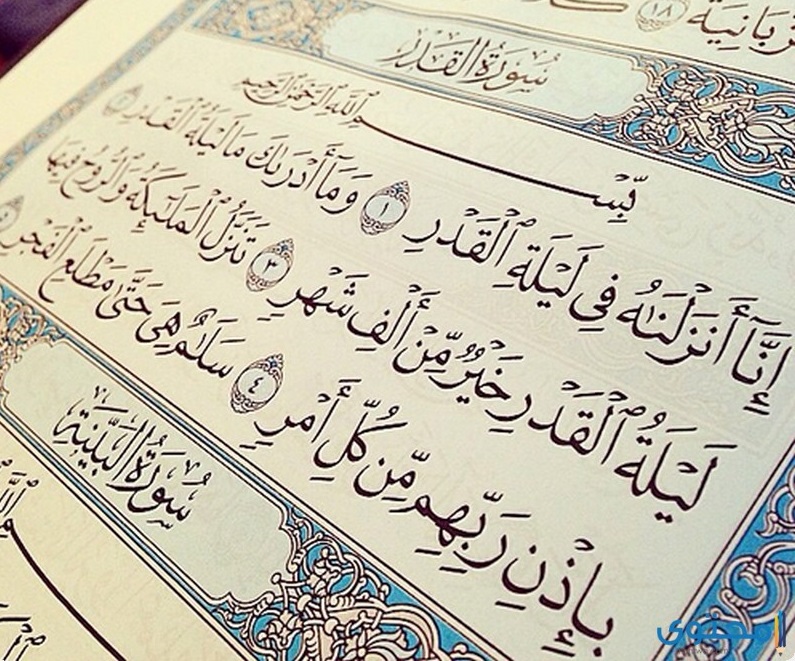 زبانية ١٨
سورة القدر
بِسْمِ اللَّهِ الرَّحْمَٰنِ الرَّحِيمِ
إِنَّا أَنزَلْنَٰهُ فِي لَيْلَةِ الْقَدْرِ ١ وَمَا أَدْرَىٰكَ مَا لَيْلَةُ الْقَدْرِ ٢
لَيْلَةُ الْقَدْرِ خَيْرٌ مِّنْ أَلْفِ شَهْرٍ ٣ تَنَزَّلُ الْمَلَٰٓئِكَةُ وَالرُّوحُ فِيهَا
بِإِذْنِ رَبِّهِم مِّن كُلِّ أَمْرٍ ٤ سَلَٰمٌ هِيَ حَتَّىٰ مَطْلَعِ الْفَجْرِ ٥
سورة البينة